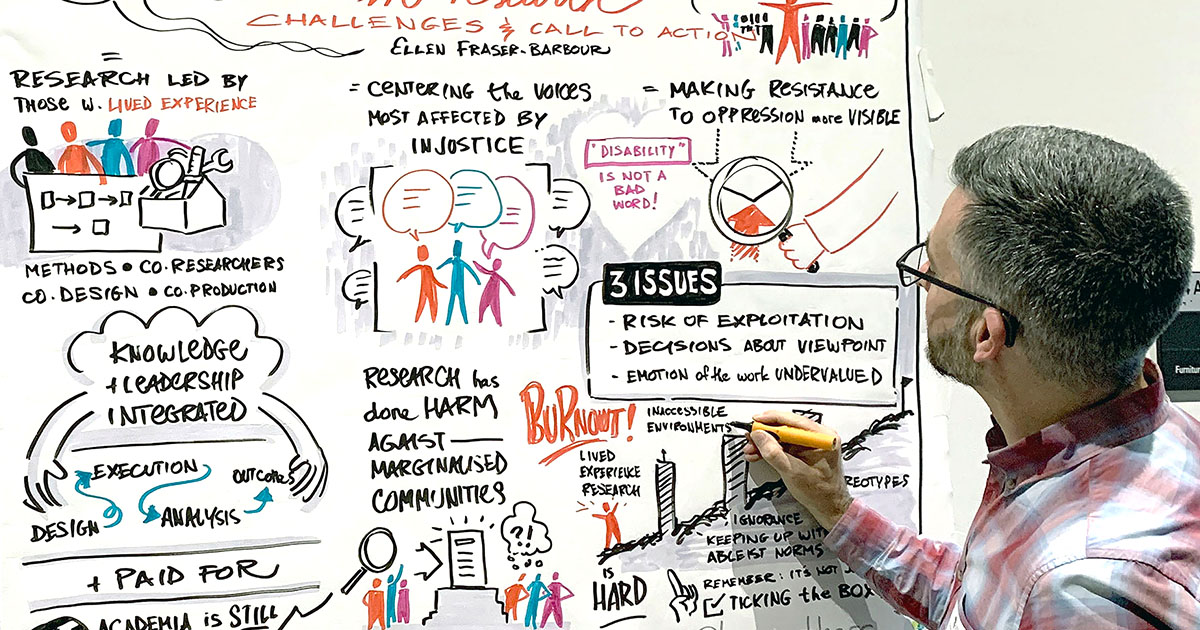 CHALLENGES & CALL TO ACTION
ELLEN FRASER-BARBOUR
=
RESEARCH LED BY
THOSE W. LIVED EXPERIENCE
METHODS • CO.RESEARCHERS
CO.DESIGN • CO.PRODUCTION
KNOWLEDGE
+ LEADERSHIP
INTEGRATED
EXECUTION
OUTCOMES
DESIGN
ANALYSIS
+ PAID FOR
ACADEMIA is STILL
= CENTERING the VOICES
MOST AFFECTED BY
INJUSTICE
RESEARCH has
done HARM
AGAINST
MARGINALISED
COMMUNITIES
?!
= MAKING RESISTANCE
TO OPPRESSION more VISIBLE
"DISABILITY"
IS NOT A
BAD
WORD!
3 ISSUES
- RISK OF EXPLOITATION
- DECISIONS ABOUT VIEWPOINT
- EMOTION of the work UNDERVALUED
BURNOUT!
INACCESSIBLE
ENVIRONMENTS
LIVED
EXPERIENCE
RESEARCH
IS
HARD
REOTYPES
IGNORANCE
KEEPING UP WITH
ABLEIST NORMS
REMEMBER: IT'S NOT
TICKING the BOX
Furnitur